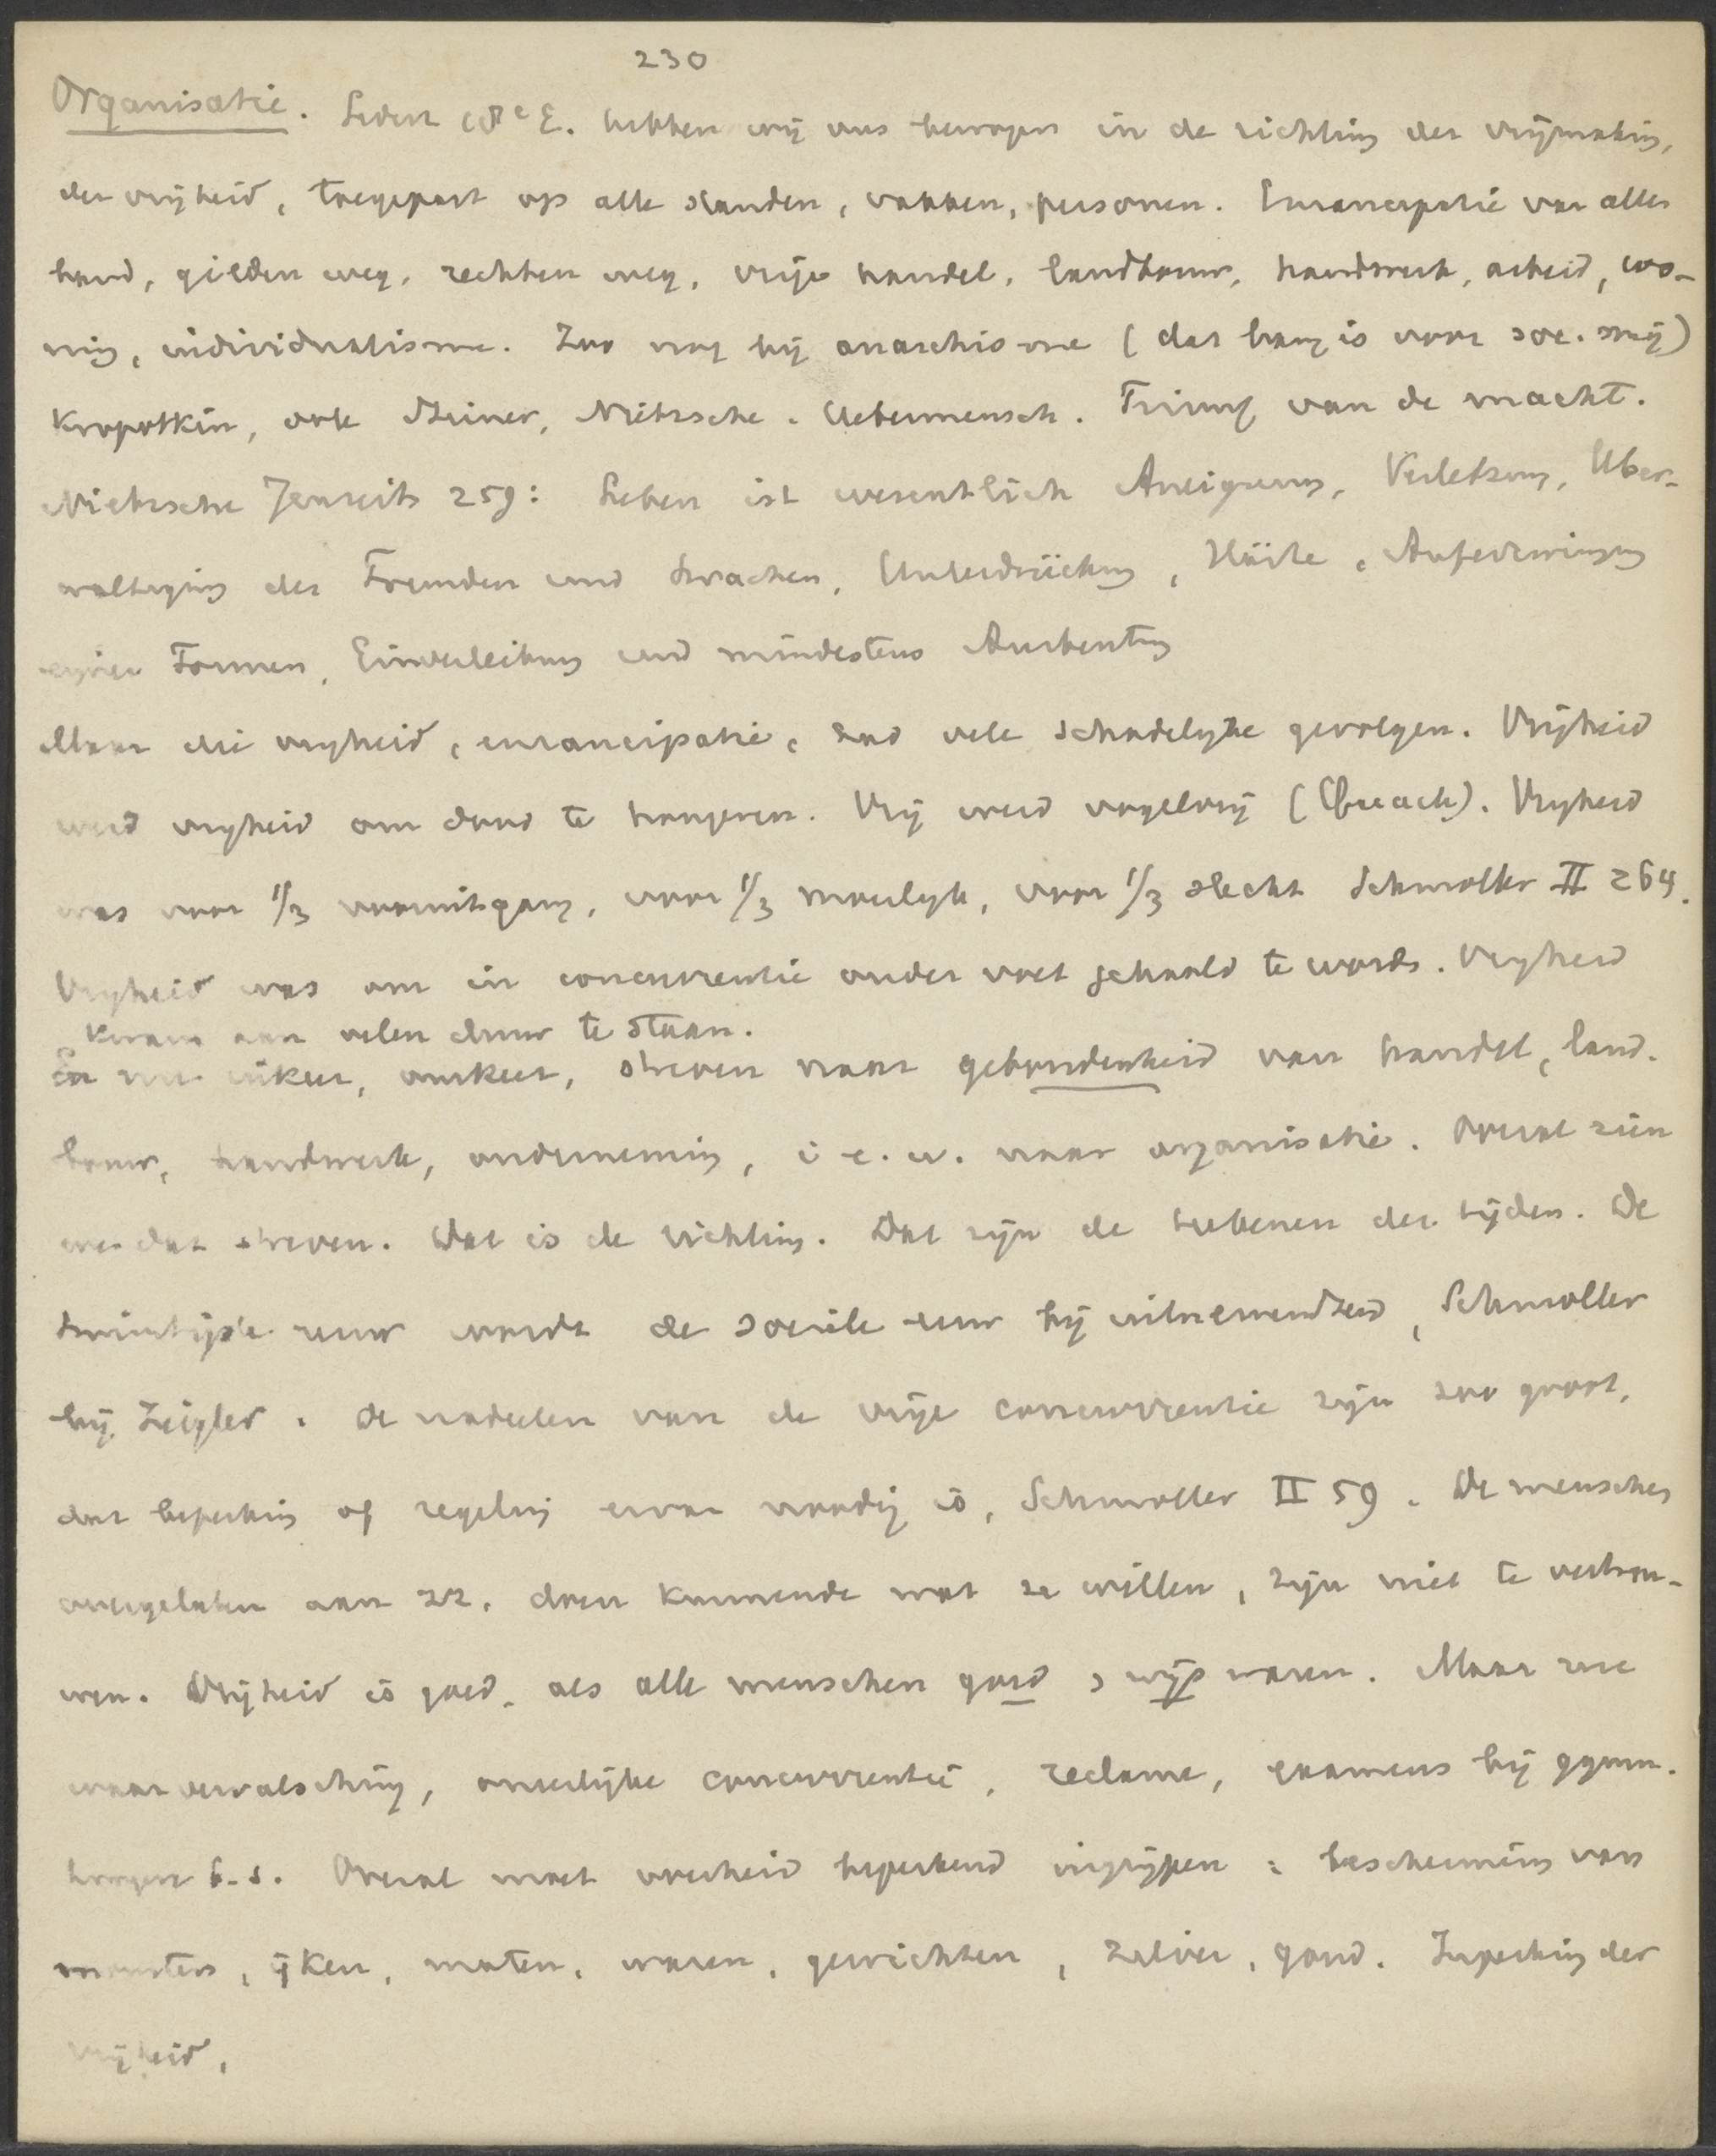 230
Organisatie. Sedert 18e E. hebben wij ons bewogen in de richting der vrijmaking,
der vrijheid, toegepast op alle standen, vakken, personen. Emancipatie van allen
band, gilden weg, rechten weg, vrije handel, landbouw, handwerk, arbeid, wo-
ning, individualisme. Zoo nog bij anarchisme (dat bang is voor soc. mij)
Kropotkin, ook Stirner, Nietzsche. Uebermensch. Triumf van de macht.
Nietzsche Jenseits 259: Leben ist wesentlich Aneignung, Verletzung, Über-
wältigung des Fremden und Schwachen, Unterdrückung, Härte, Aufzwingung
eigner Formen, Einverleibung und mindestens Ausbeutung
Maar die vrijheid, emancipatie, had vele schadelijke gevolgen. Vrijheid
werd vrijheid om dood te hongeren. Vrij werd vogelvrij. Vrijheid
was voor 1/3 vooruitgang, voor 1/3 moeilijk, voor 1/3 slecht Schmoller II 264.
Vrijheid was om in concurrentie onder voet gehaald te worden. Vrijheid
kwam aan velen duur te staan.
En nu inkeer, omkeer, streven naar gebondenheid van handel, land-
bouw, handwerk, onderneming, i. e. w. naar organisatie. Overal zien
we dat streven. Dat is de richting. Dat zijn de teekenen der tijden. De
twintigste eeuw wordt de sociale eeuw bij uitnemendheid, Schmoller
bij Ziegler. De nadeelen van de vrije concurrentie zijn zoo groot,
dat beperking of regeling ervan noodig is, Schmoller II 59. De menschen
overgelaten aan zz., doen kunnende wat ze willen, zijn niet te vertrou-
wen. Vrijheid is goed, als alle menschen goed & wijs waren. Maar zie
waarvervalsching, oneerlijke concurrentie, reclame, examens bij gymn.
hoogere b.s. Overal moet overheid beperkend ingrijpen: bescherming van
munten, ijken, maten, waren, gewichten, zilver, goud. Beperking der
vrijheid,